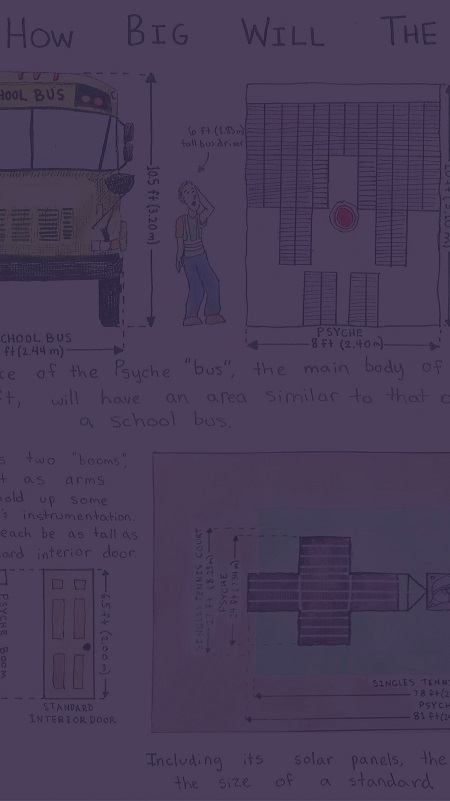 HOW BIG WILL THE
HOOL BUS
6 ft (1.83m)
tall bus driver
10.5 ft (3.20m)
CHOOL BUS
ft (2.44 m)
PSYCHE
8 ft (2.40m)
ce of the Psyche "bus", the main body of
ft, will have an area similar to that o
a school bus.
s two "booms",
t as arms
old up some
's instrumentation.
each be as tall as
ard interior door.
PSYCHE BOOM
6.5 ft (2.00m)
STANDARD
INTERIOR DOOR
SINGLES TENNIS COURT
PSYCHE
SINGLES TENN
78 ft (2
PSYC
81 ft (2
Including its solar panels, the
the size of a standard